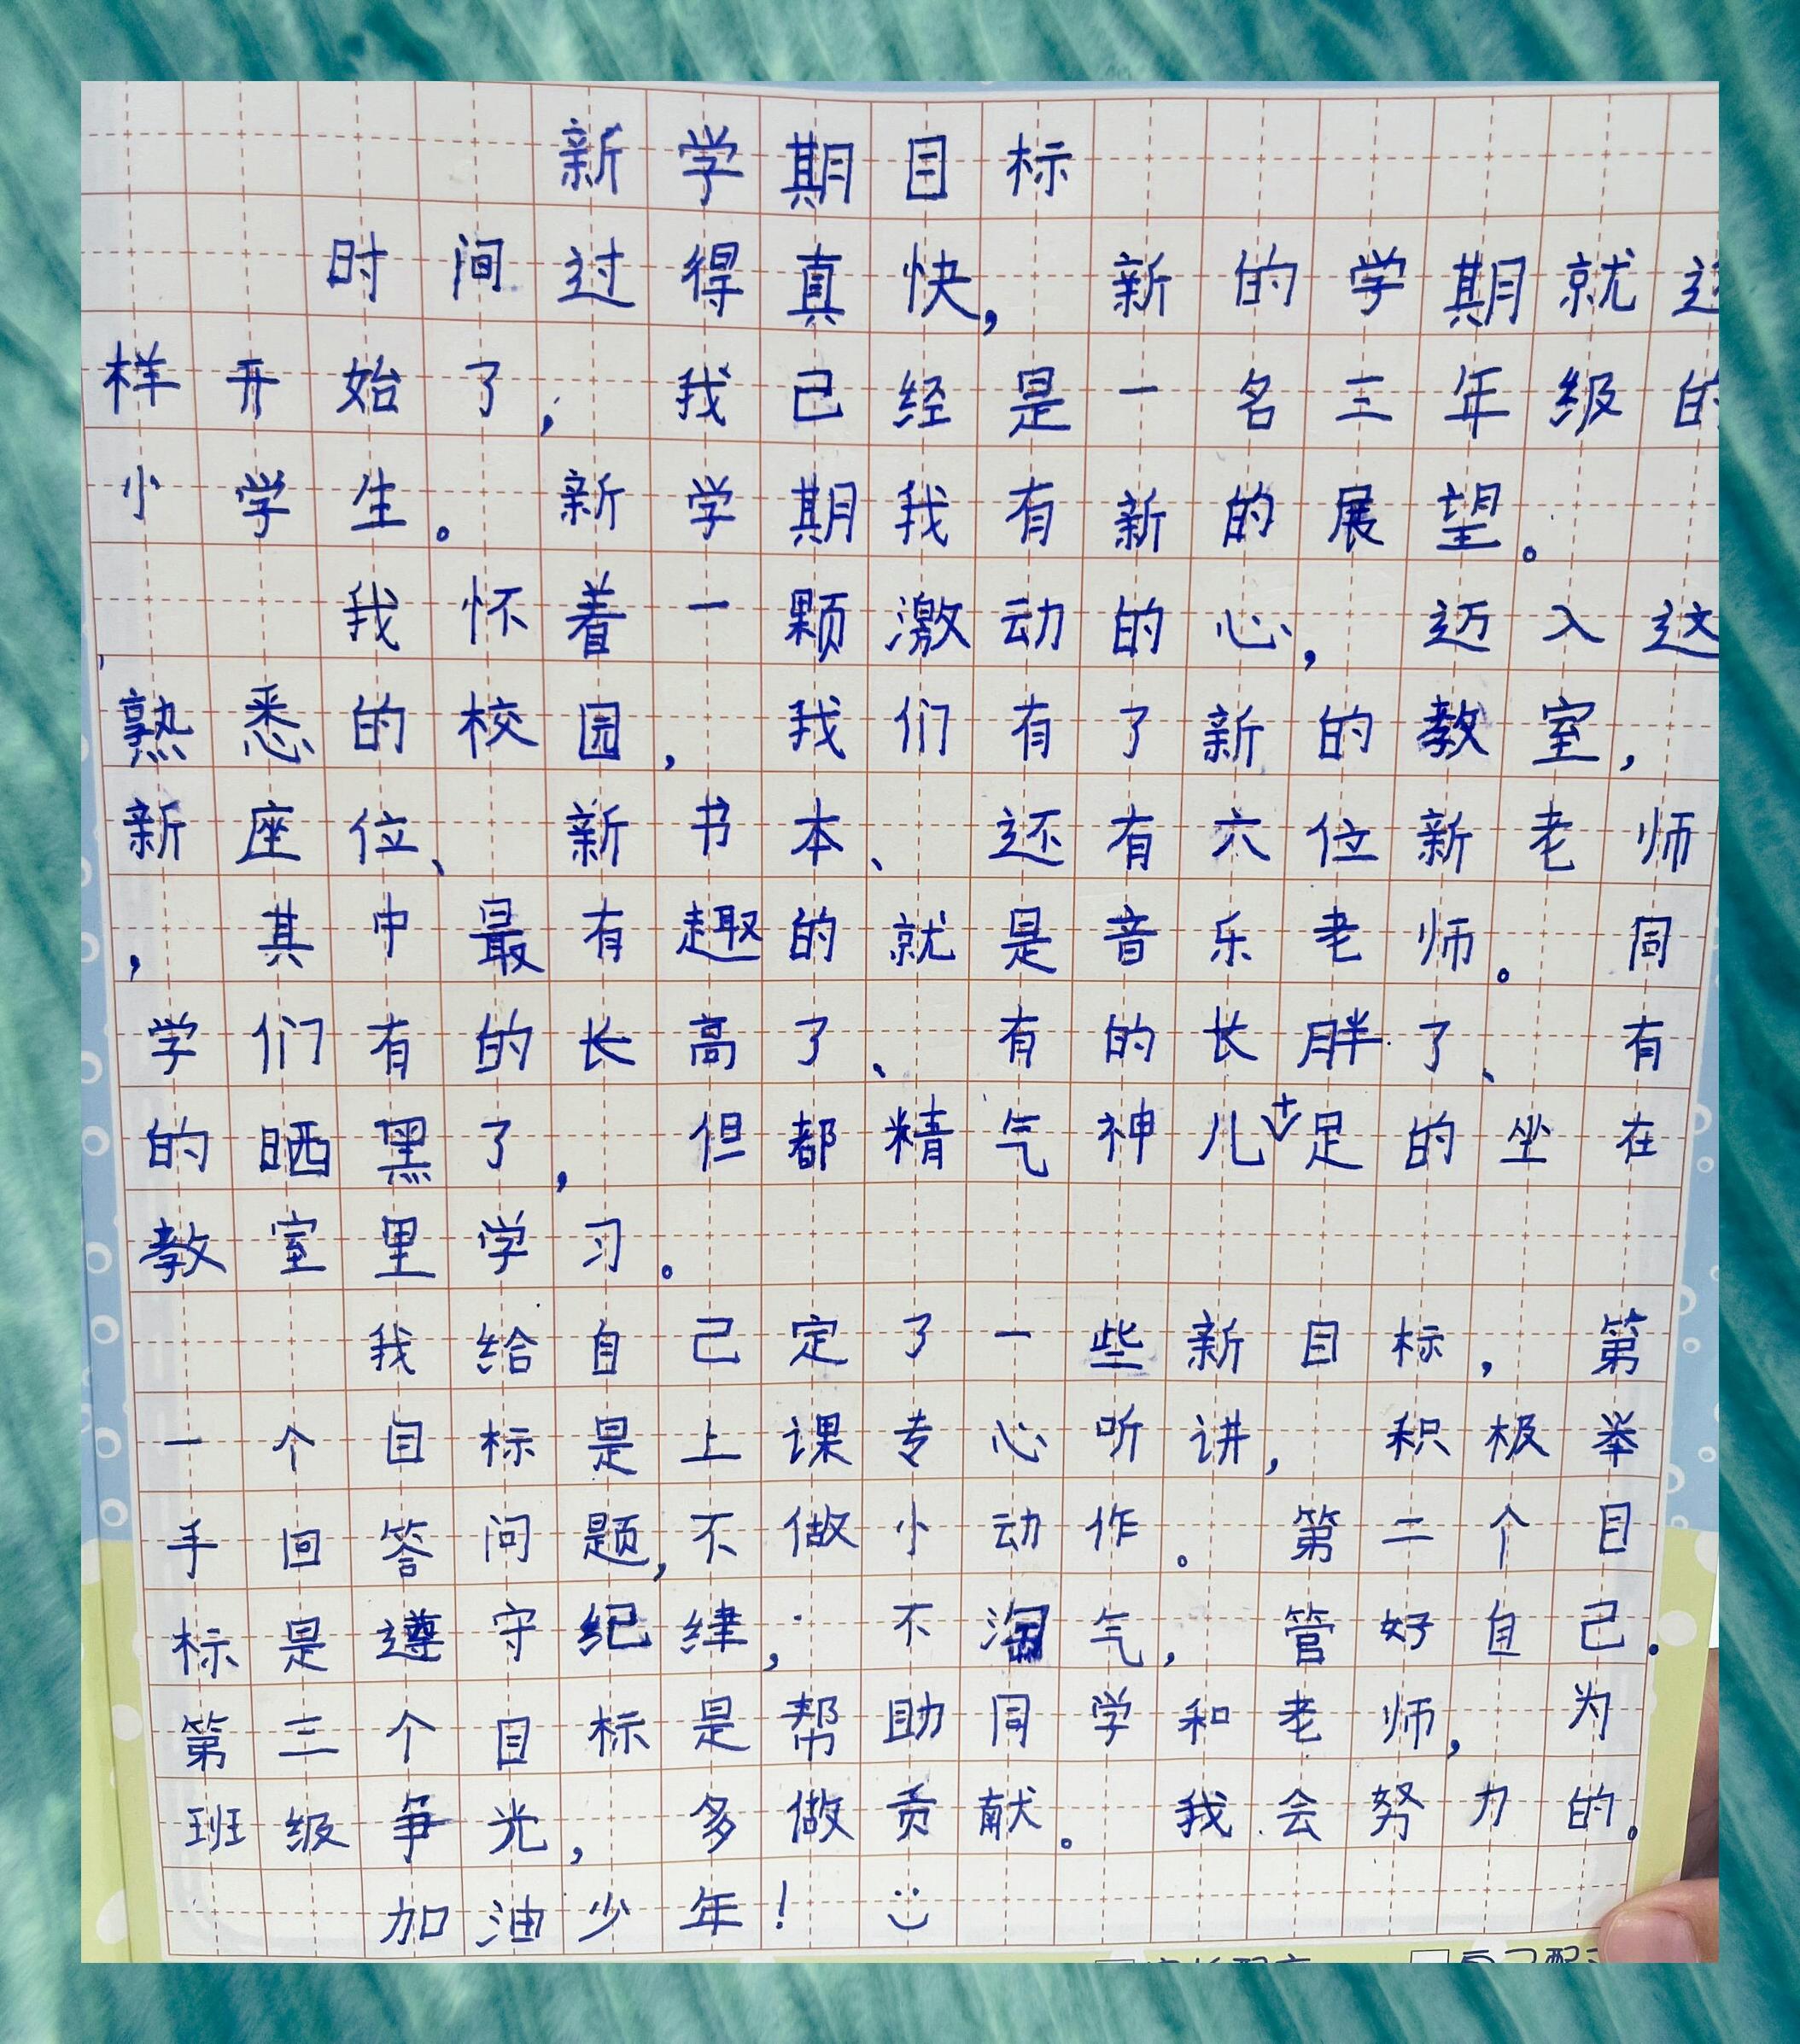 新学期目标
时间过得真快，新的学期就这
样开始了，我己经是一名三年级的
小学生。新学期我有新的展望。
我怀着一颗激动的心，迈入这
熟悉的校园，我们有了新的教室，
新座位、新书本、还有六位新老师
，其中最有趣的就是音乐老师。同
学们有的长高了、有的长胖了、有
的晒黑了，但都精气神儿十足的坐在
教室里学习。
我给自己定了一些新目标，第
一个目标是上课专心听讲，积极举
手回答问题，不做小动作。第二个目
标是遵守纪律，不淘气，管好自己.
第三个目标是帮助同学和老师，为
班级争光，多做贡献。我会努力的。
加油少年！